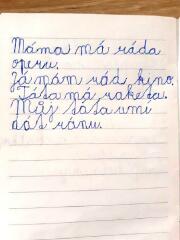 Máma má ráda
operu.
Já mám rád kino.
Táta má raketa.
Můj táta umí
dát ránu.